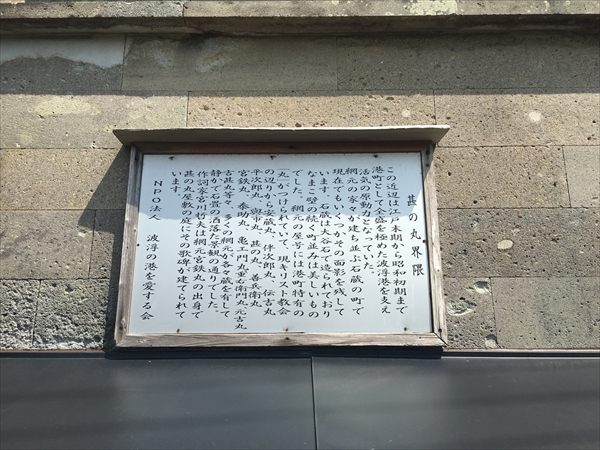 甚の丸界隈
この近辺は江戸末期から昭和初期まで
港町として全盛を極めた波浮港を支え
活気の原動力となっていた。
網元の家々が建ち並ぶ石蔵の町で
現在でもいくつかその面影を残して
います。石蔵は大谷石で造られており
なまこ壁の続く町並みは美しいもの
でした。網元の屋号には港町特有の
「丸」がつけられていて、現キリスト教会
の辺りから安誠丸、伴次郎丸、伝吉丸
平次郎丸、御平丸、甚の丸、善兵衛丸
宮鉄丸、泰助丸、亀エ門丸、重右衛門丸、元吉丸
古甚丸等々、多くの網元が各々蔵を有して
静かで石畳の洒落た景観の通りでした。
作詞家宮川哲夫は網元宮鉄丸の出身で
甚の丸屋敷の庭にその歌碑が建てられて
います。
NPO法人 波浮の港を愛する会